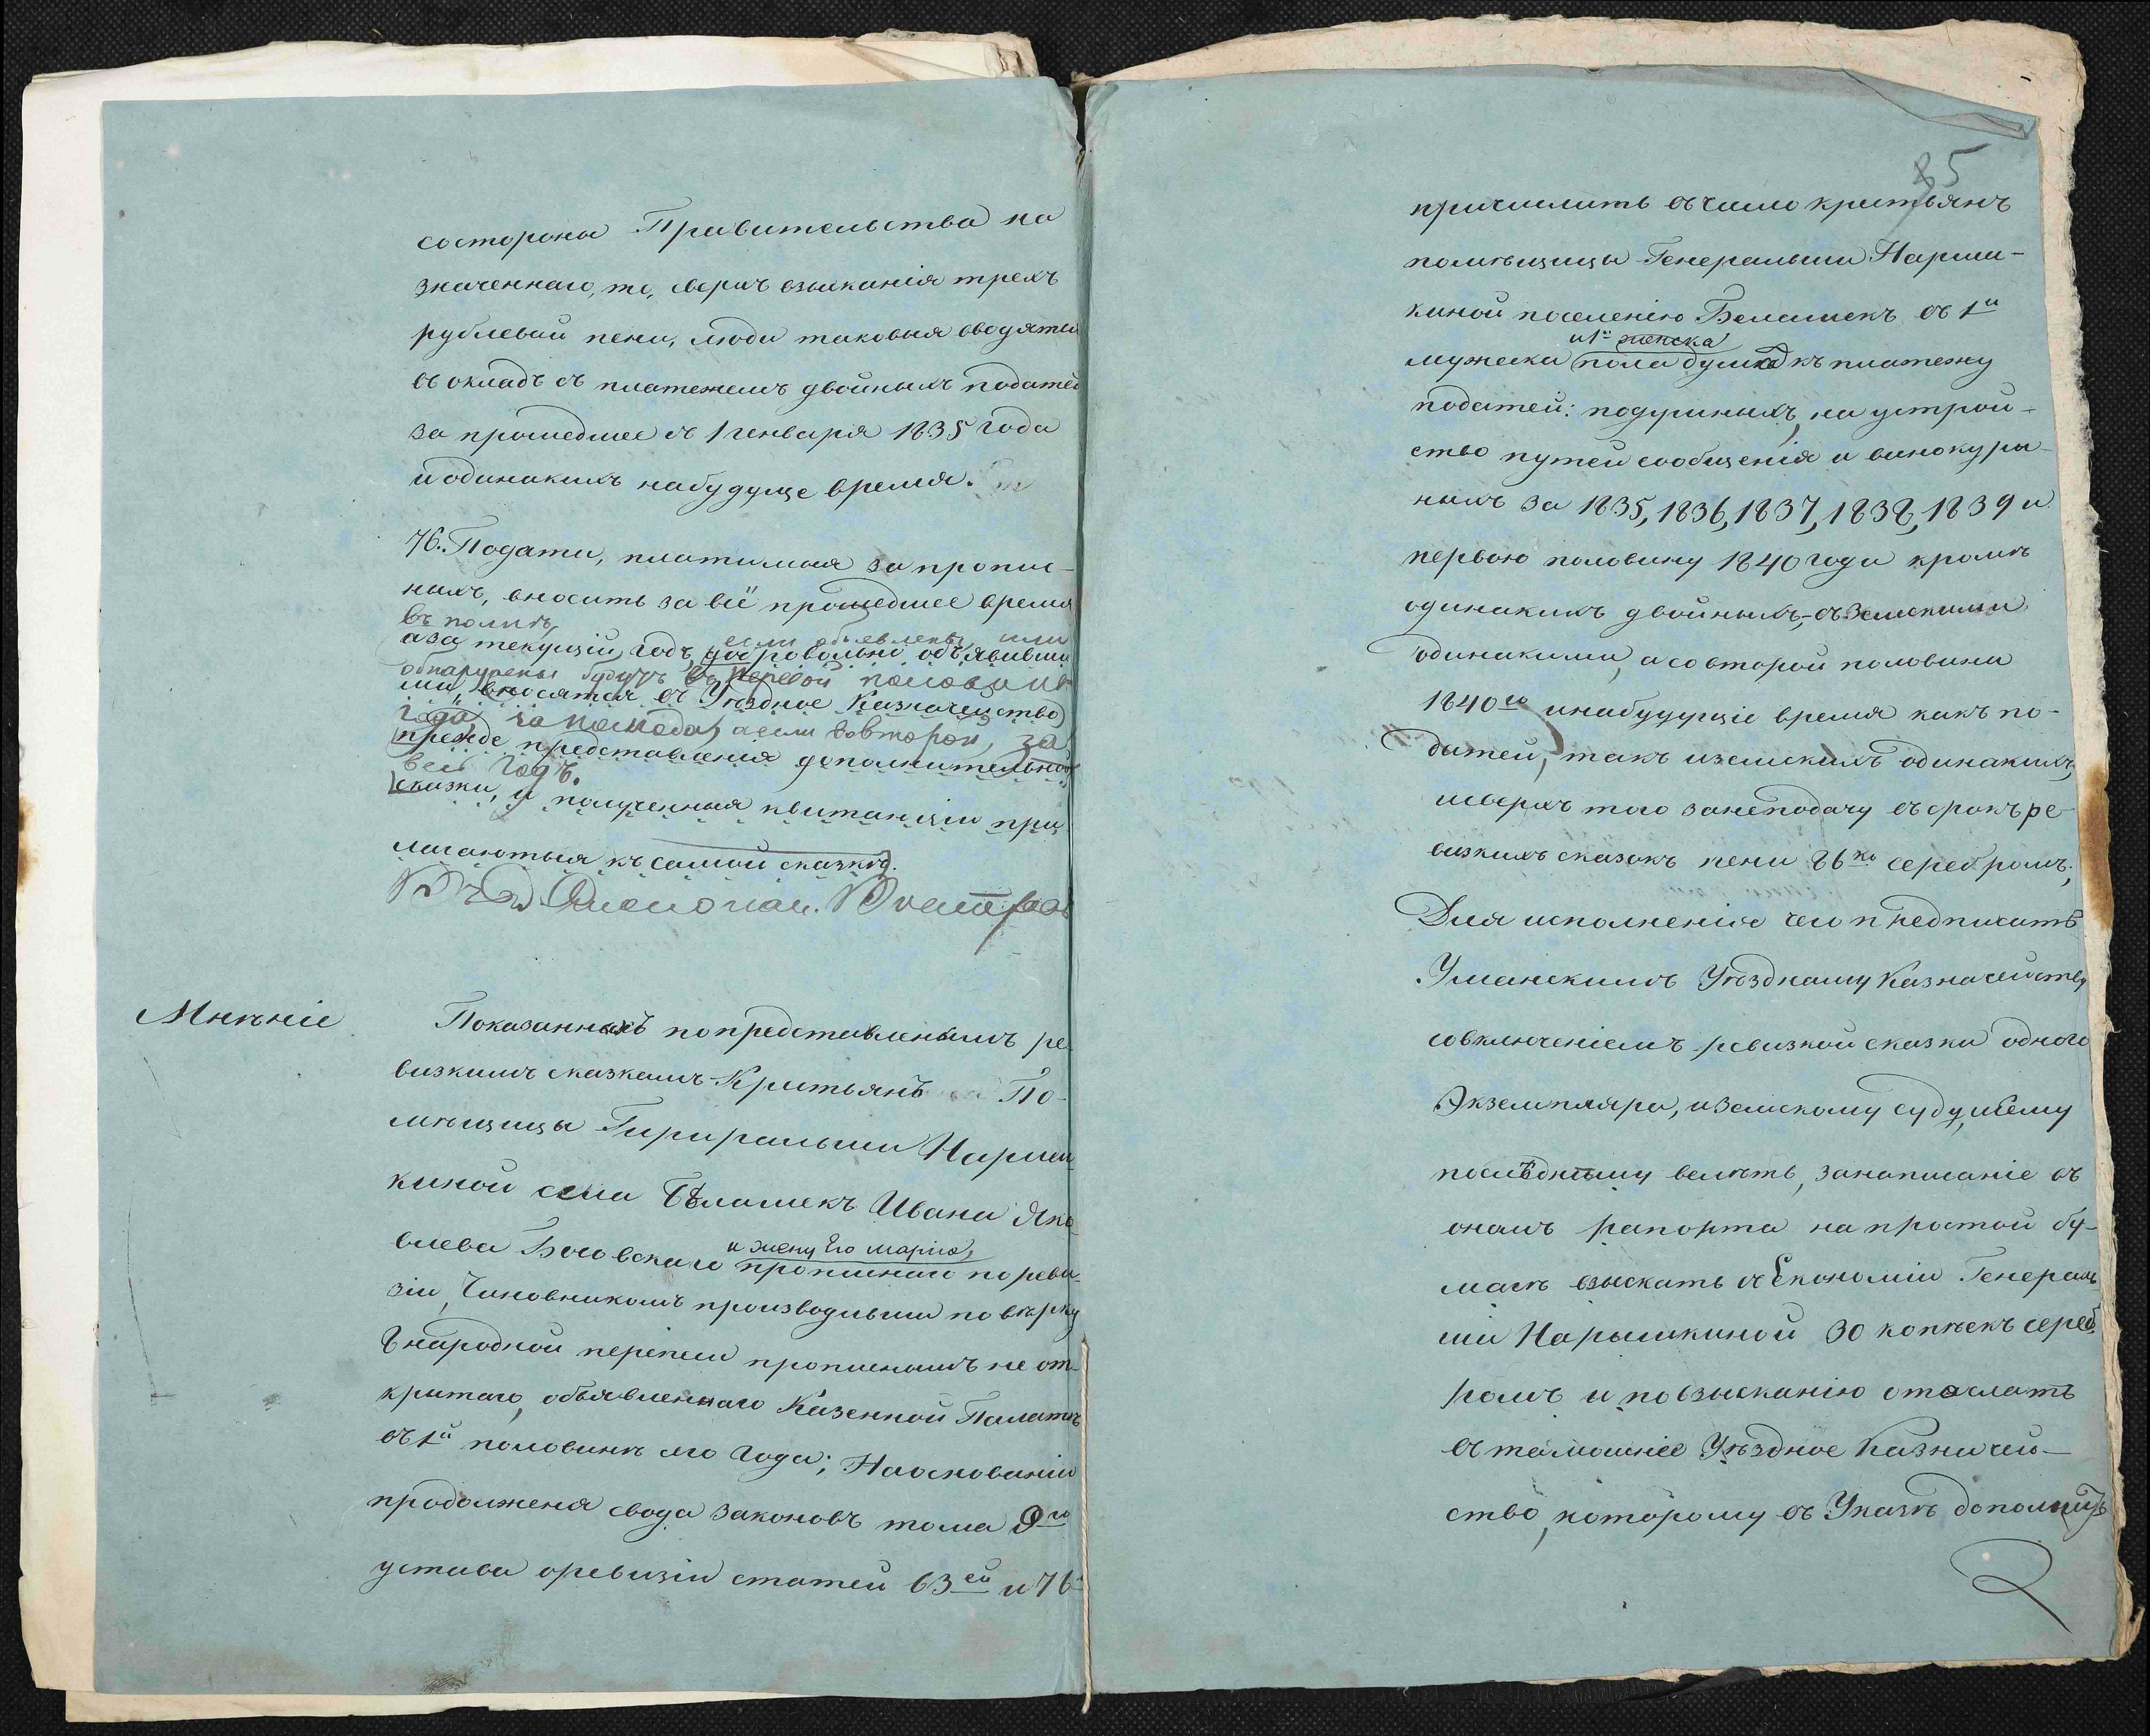 состороны Правительства на
значеннаго, то, сверхъ взысканія трехъ
рублевой пени, люди таковыя вводятся
въ окладъ съ платежемъ двойныхъ податей
за прошедшее съ 1 генваря 1835 года
и одинакихъ набудуще время.
76. Подати, платимыя за пропис-
ныхъ, вносить за всё прошедшее время
въ полнѣ,
а за текущій годъ, добровольно объявивши
если объявлены или
обнаружены будутъ въ первой половинѣ
ми, вносятся въ Уѣздное Казначейство
года, за полгода, а если вовторой, за
прежде представленія дополнительной
весь годъ.
сказки, и полученныя квитанціи при
лагаются къ самой сказкѣ.
Мнѣніе
Показанныхъ попредставленымъ ре
визкимъ сказкамъ Кристьянъ По-
мѣщицы Гинральши Нарыш
киной села Бѣлашекъ Ивана Яко
влева Босовскаго прописнаго по реви
и жену Его марію,
зіи, Чиновникомъ производивши повѣрку
8 народной перепеси прописнымъ не от
критаго, объявленнаго Казенной Палатѣ
въ 1й половинѣ сего года; На основаніи
продолженя свода законовъ тома 9го
устава оревизіи статей 63ей и 76
85
причислить въ число кристьянъ
помѣщицы Генеральши Нарыш-
киной поселенію Белашекъ въ 1й
и 1й женска
мужеска пола души къ платежу
податей: подушныхъ, на устрой-
ство путей сообщенія и винокур-
ныхъ за 1835, 1836, 1837, 1838, 1839 и
первою половину 1840 года кромѣ
одинакихъ двойныхъ,-съ земскими
одинакими, а со второй половины
1840го инабудущіе время какъ по-
датей, такъ иземскихъ одинакихъ,
исверхъ того занеподачу въ срокъ ре
визкихъ сказокъ пени 86 ко серебромъ;
Для исполненія чего предписать
Уманскимъ Уѣздному Казначейству
совключеніемъ ревизкой сказки одного
Экземпляра, и Земскому суду, исему
послѣднему велѣть, занаписаніе въ
онамъ рапорта на простой бу-
магѣ взыскать съ Економіи Генераль
ши Нарышкиной 30 копѣекъ сереб
ромъ и повзысканію отослать
въ тамошнее Уѣздное Казначей-
ство, которому въ Указѣ дополнить